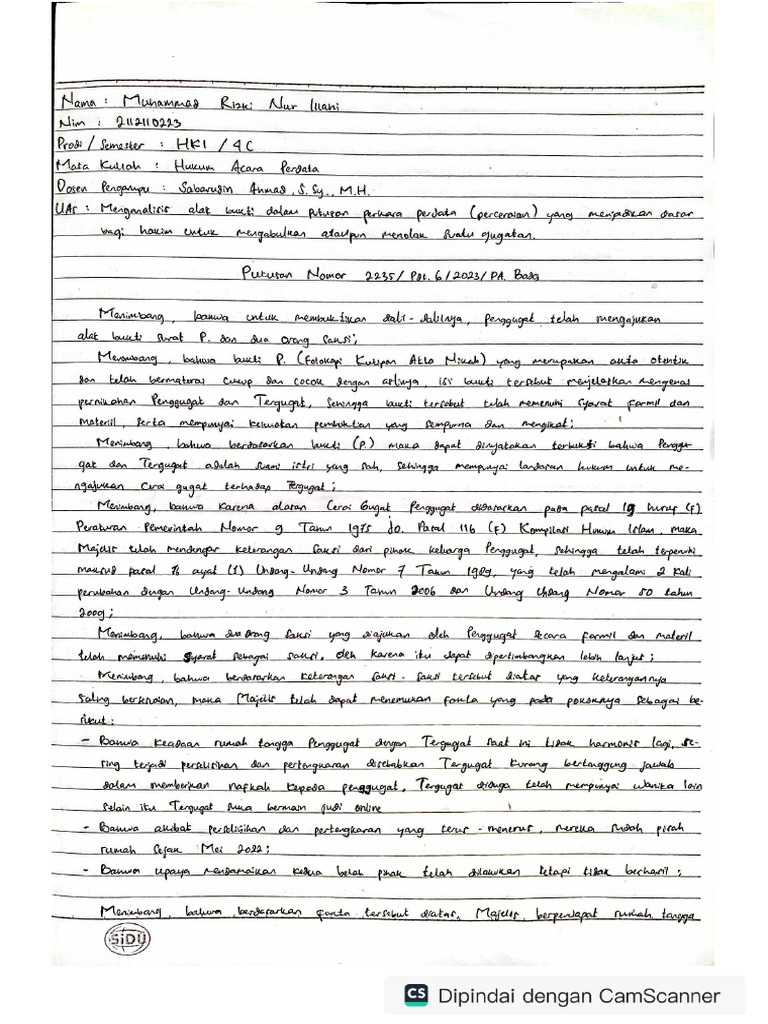 Nama : Muhammad Rizki Nur Illahi
Nim : 2112110223
Prodi / Semester : HKI / 4C
Mata Kuliah : Hukum Acara Perdata
Dosen Pengampu : Sabarudin Ahmad, S. Sy., M.H.
UAS : Menganalisis alat bukti dalam putusan perkara perdata (perceraian) yang menjadikan dasar
bagi hakim untuk mengabulkan ataupun menolak suatu gugatan.
Putusan Nomor 2235/ Pdt. G/2023/PA. Badg
Menimbang, bahwa untuk membuktikan dalil-dalilnya, penggugat telah mengajukan
alat bukti surat P. dan dua orang saksi;
Menimbang, bahwa bukti P. (Fotokopi Kutipan Akta Nikah) yang merupakan akta otentik
dan telah bermaterai cukup dan cocok dengan aslinya, isi bukti tersebut menjelaskan mengenai
pernikahan Penggugat dan Tergugat, sehingga bukti tersebut telah memenuhi syarat formil dan
materiil, serta mempunyai kekuatan pembuktian yang sempurna dan mengikat;
Menimbang, bahwa berdasarkan bukti (P.) maka dapat dinyatakan terbukti bahwa Penggu-
gat dan Tergugat adalah suami istri yang sah, sehingga mempunyai landasan hukum untuk me-
ngajukan Cerai gugat terhadap Tergugat;
Menimbang, bahwa karena alasan Cerai Gugat Penggugat didasarkan pada pasal 19 huruf (F)
Peraturan Pemerintah Nomor 9 Tahun 1975 jo. Pasal 116 (F) Kompilasi Hukum Islam, maka
Majelis telah mendengar keterangan saksi dari pihak keluarga Penggugat, sehingga telah terpenuhi
maksud pasal 76 ayat (1) Undang-Undang Nomor 7 Tahun 1989, yang telah mengalami 2 kali
perubahan dengan Undang-Undang Nomor 3 Tahun 2006 dan Undang Undang Nomor 50 tahun
2009;
Menimbang, bahwa dua orang saksi yang diajukan oleh Penggugat secara formil dan materil
telah memenuhi syarat sebagai saksi, oleh karena itu dapat dipertimbangkan lebih lanjut;
Menimbang, bahwa berdasarkan keterangan saksi-saksi tersebut diatas yang keterangannya
saling bersesuaian, maka Majelis telah dapat menemukan fakta yang pada pokoknya sebagai be-
rikut :
- Bahwa keadaan rumah tangga Penggugat dengan Tergugat saat ini tidak harmonis lagi, se-
ring terjadi perselisihan dan pertengkaran disebabkan Tergugat kurang bertanggung jawab
dalam memberikan nafkah kepada penggugat, Tergugat diduga telah mempunyai wanita lain
selain itu Tergugat suka bermain judi online
- Bahwa akibat perselisihan dan pertengkaran yang terus-menerus, mereka sudah pisah
rumah sejak Mei 2022;
- Bahwa upaya mendamaikan kedua belah pihak telah dilakukan tetapi tidak berhasil;
Menimbang, bahwa berdasarkan fakta tersebut diatas, Majelis, berpendapat rumah tangga
SiDU
CS Dipindai dengan CamScanner